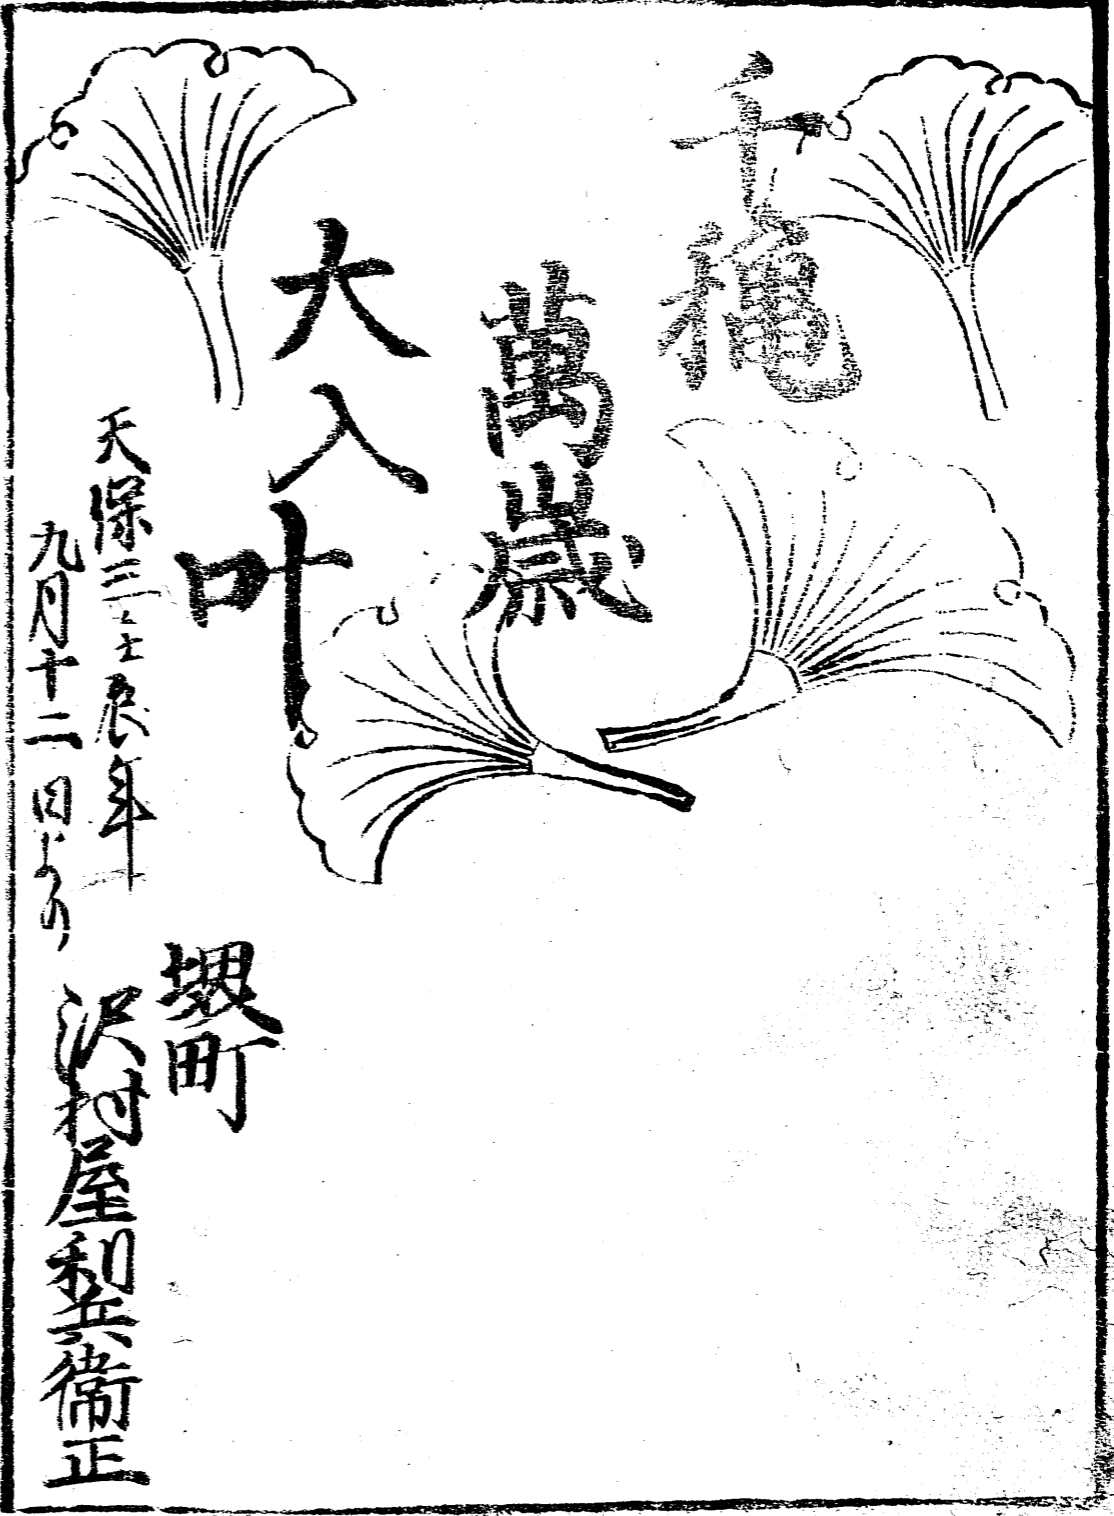 千穐
萬歳
大入叶
天保三壬辰年
九月十二日より
堺町
沢村屋利兵衛正